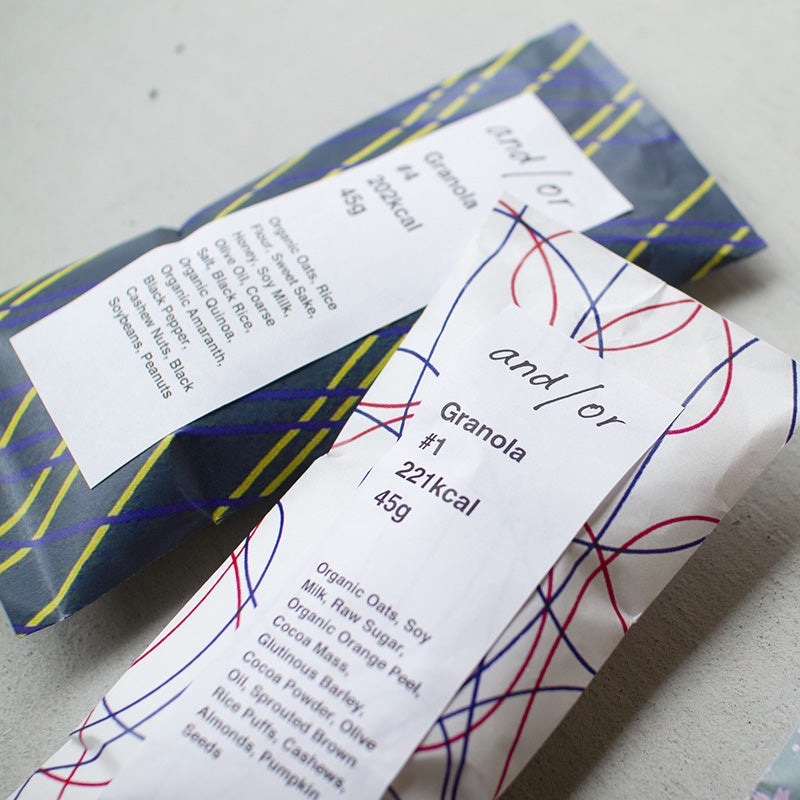 and/or
Granola
#4
202kcal
45g
Organic Oats, Rice
Flour, Sweet Sake,
Honey, Soy Milk,
Olive Oil, Coarse
Salt, Black Rice,
Organic Quinoa,
Organic Amaranth,
Black Pepper,
Cashew Nuts, Black
Soybeans, Peanuts
and/or
Granola
#1
221kcal
45g
Organic Oats, Soy
Milk, Raw Sugar,
Organic Orange Peel,
Cocoa Mass,
Glutinous Barley,
Cocoa Powder, Olive
Oil, Sprouted Brown
Rice Puffs, Cashews,
Almonds, Pumpkin
Seeds